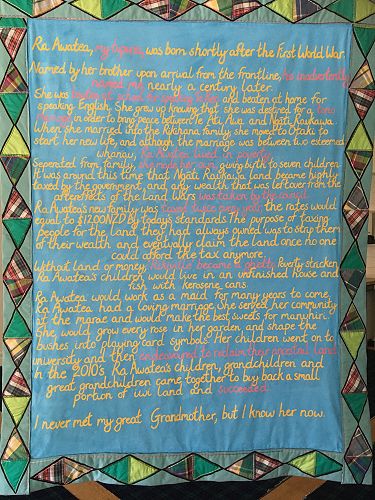 Ra Awatea, my tupuna, was born shortly after the First World War.
Named by her brother upon arrival from the frontline, he inadvertently
named me nearly a century later.
She was beaten at school for speaking te reo and beaten at home for
speaking English. She grew up knowing that she was destined for a
marriage in order to bring peace between Te Ati Awa and Ngati Raukawa.
When she married into the Rikihana family, she moved to Otaki to
start her new life, and although the marriage was between two esteemed
whanau, Ra Awatea lived in poverty.
Seperated from family, she made her own, giving birth to seven children.
It was around this time that Ngati Raukawa land became highly
taxed by the government, and any wealth that was leftover from the
aftereffects of the Land Wars was taken by the crown.
Ra Awatea's new family was taxed twice per year, the rates would
equal to $12,000NZD by today's standards. The purpose of taxing
people for the land they had always owned was to strip them
of their wealth and eventually claim the land once no one
could afford the tax anymore.
Without land or money, became a ghetto. Poverty stricken,
Ra Awatea's children would live in an unfinished house and
fish with kerosene cans.
Ra Awatea would work as a maid for many years to come.
Ra Awatea had a loving marriage. She served her community
at the marae and would make the best sweets for manuhiri.
She would grow every rose in her garden and shape the
bushes into playing card symbols. Her children went on to
university and then endeavoured to reclaim their ancestral land.
In the 2010's Ra Awatea's children, grandchildren and
great grandchildren came together to buy back a small
portion of iwi land and succeeded.
I never met my great Grandmother, but I know her now.